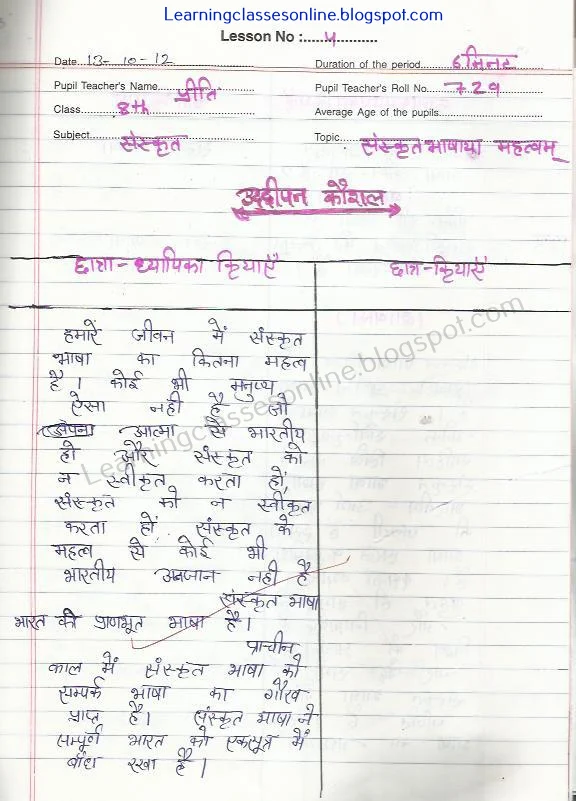 Learningclassesonline.blogspot.com
Lesson No :.....4.....
Date...13-10-12...
Duration of the period...6 मिनट...
Pupil Teacher's Name...प्रीति...
Pupil Teacher's Roll No...729...
Class...8th...
Average Age of the pupils...
Subject...संस्कृत...
Topic...संस्कृत भाषाया महत्वम्
उद्दीपन कौशल
छात्रा-ध्यापिका क्रियाएँ
छात्र-क्रियाएँ
हमारें जीवन में संस्कृत
भाषा का कितना महत्व
है। कोई भी मनुष्य
ऐसा नही है जो
अपना आत्मा से भारतीय
हो और संस्कृत को
न स्वीकृत करता हों,
संस्कृत को न स्वीकृत
करता हों संस्कृत के
महत्व से कोई भी
भारतीय अनजान नही है
संस्कृत भाषा
भारत की प्राणभूत भाषा है।
प्राचीन
काल में संस्कृत भाषा को
सम्पर्क भाषा का गौरव
प्राप्त है। संस्कृत भाषा ने
सम्पूर्ण भारत को एकसूत्र में
बाँध रखा है।
Learningclassesonline.blogspot.com